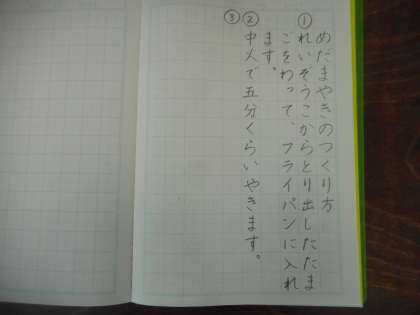 めだまやきのつくり方
①れいぞうこからとり出したたま
ごをわって、フライパンに入れ
ます。
②中火で五分くらいやきます。
③